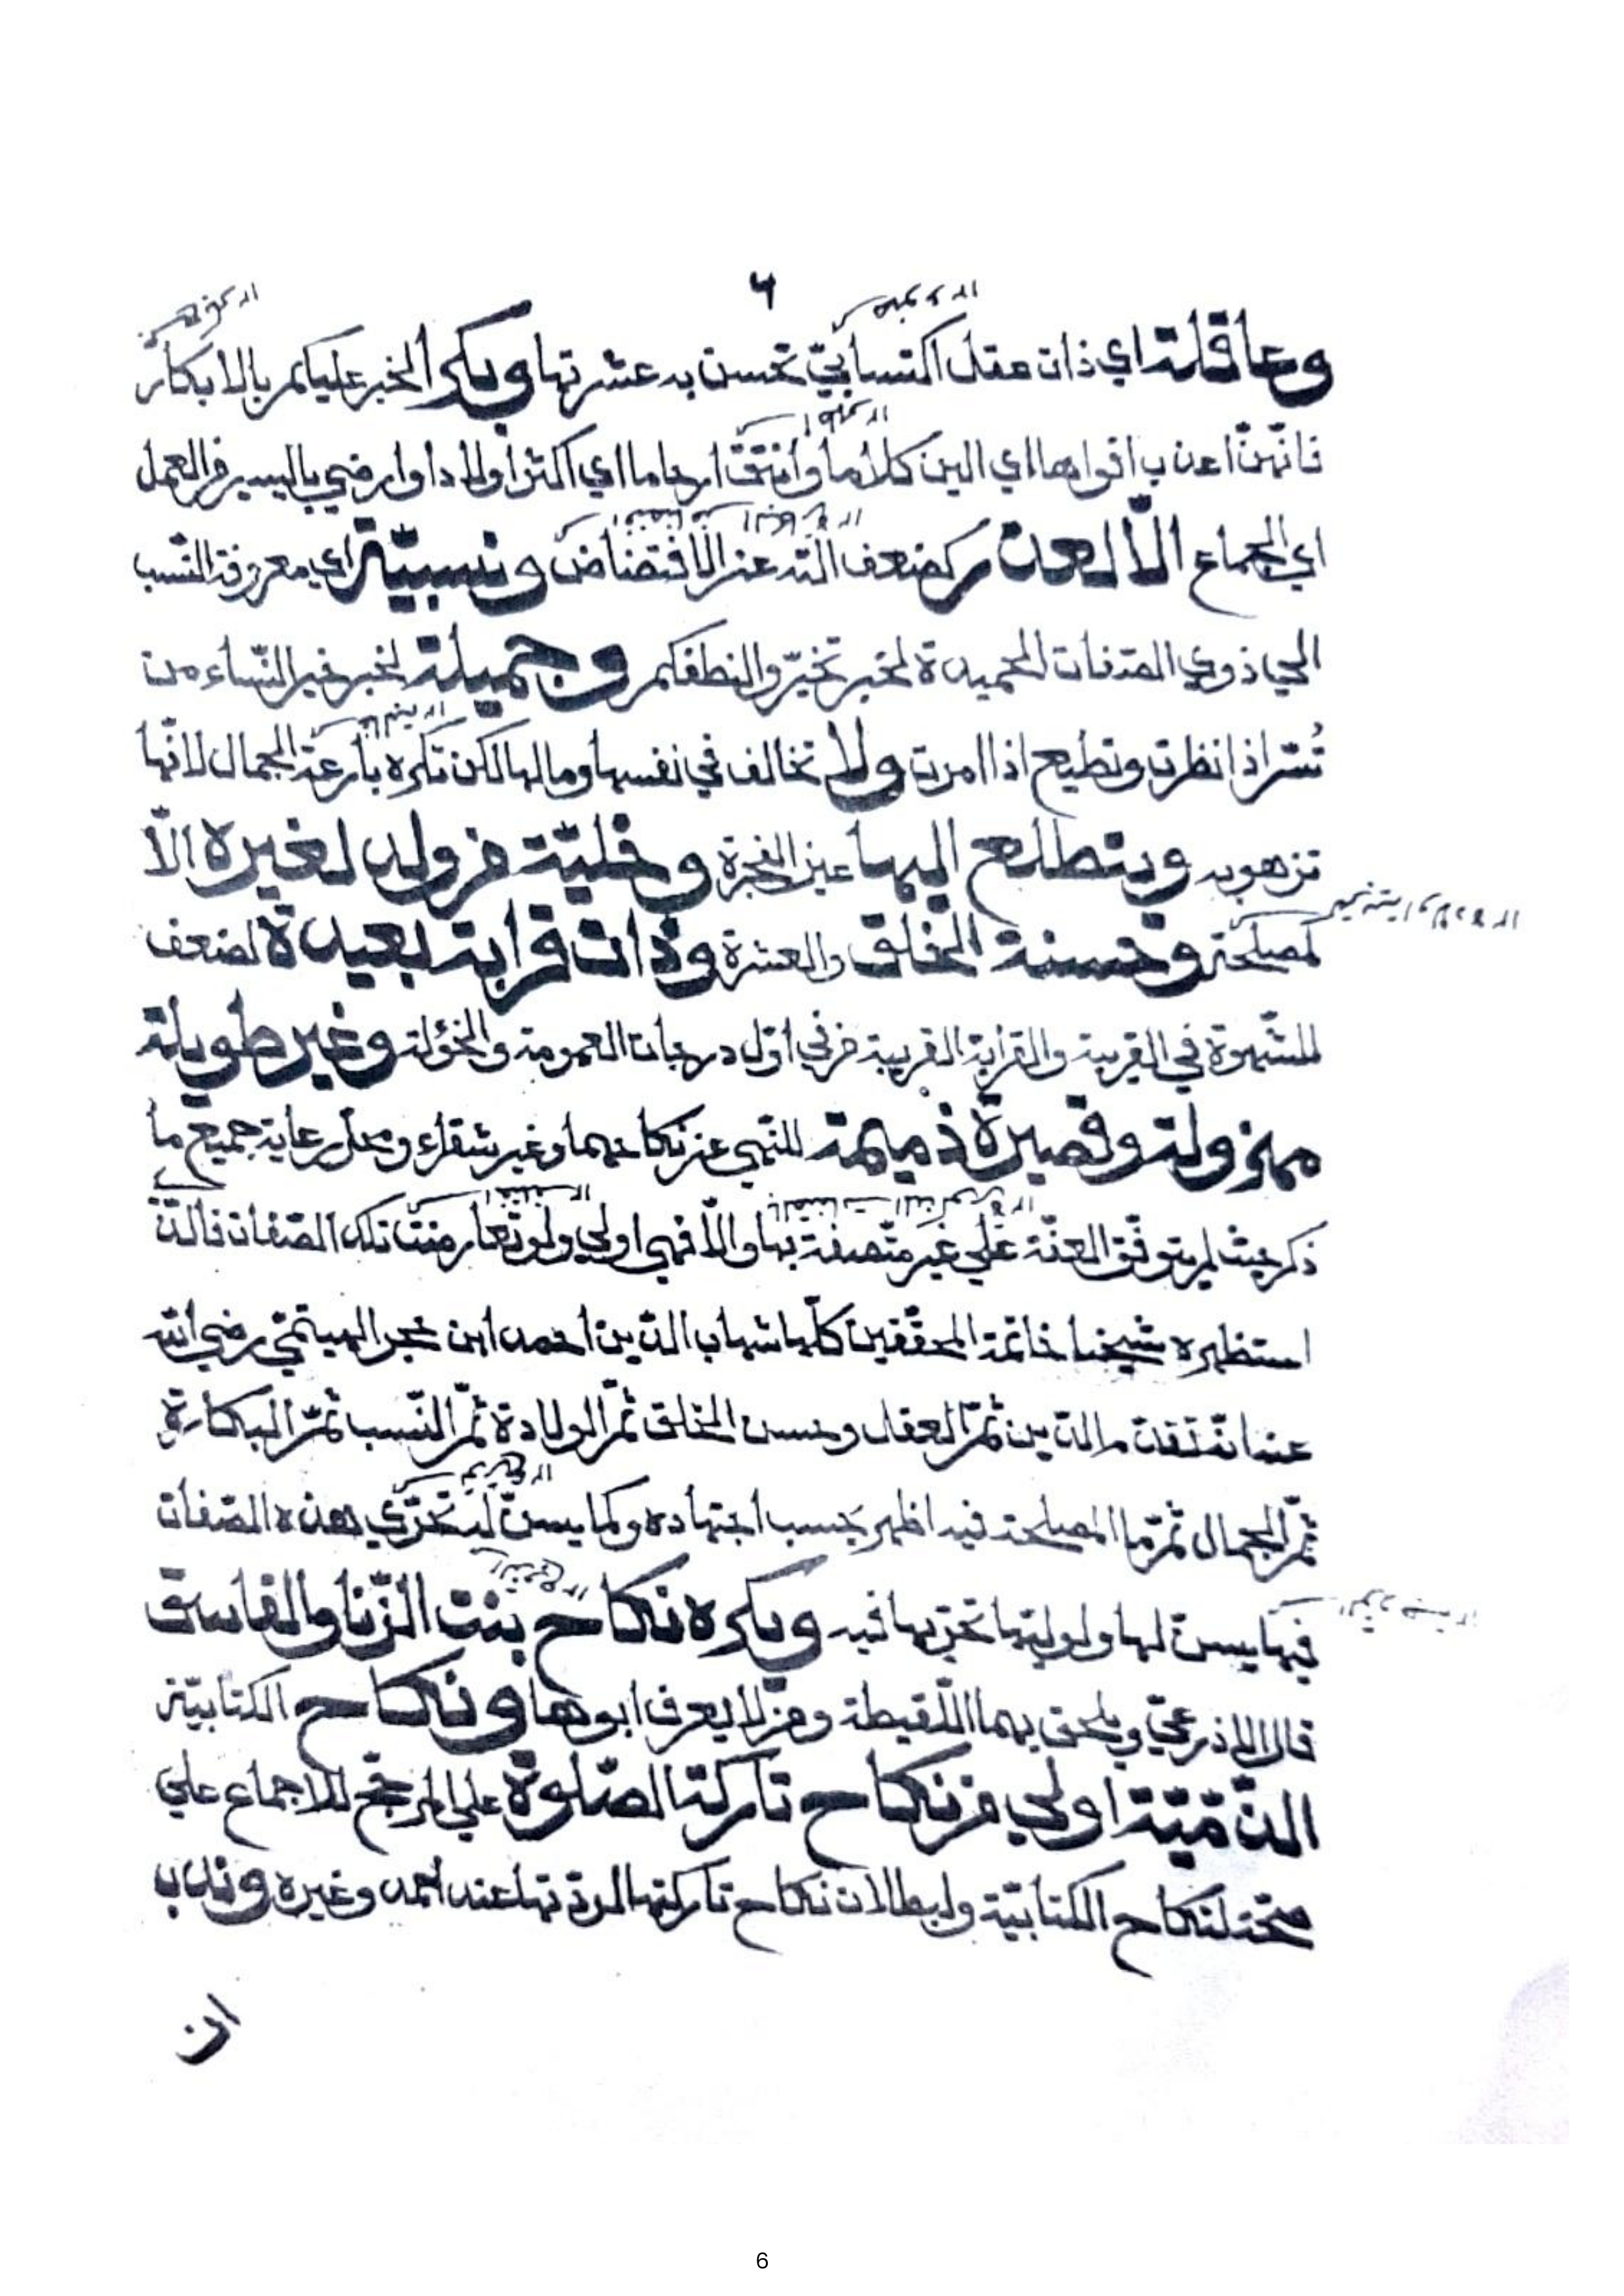 ٦
وعاقلة اي ذات عقل اكتسابيّ تحسن به عشرتها وبكر الخبر عليكم بالابكار
فانّهنّ اعذب افواها اي الين كلاما وانتق ارحاما اي اكثر اولادا وارضي باليسير من العمل
اي الجماع الّا لعذر كضعف آلته عن الافتضاض ونسيبة اي معروفة النّسب
الي ذوي الصّفات الحميدة لخبر تخيّروا لنطفكم وجميلة لخبر خير النّساء من
تُسّر اذا نظرت وتطيع اذا امرت ولا تخالف في نفسها ومالها لكن تكره بارعة الجمال لانّها
تزهو به ويتطلع اليها عين الفجرة وخليّة من ولد لغيره الّا
لمصلحة وحسنة الخلق والعشرة وذات قرابة بعيدة لضعف
الشّهوة في القريبة والقرابة القريبة من في اوّل درجات العمومة والخؤلة وغير طويلة
مهزولة وقصيرة ذميمة للنّهي عن نكاحهما وغير شقراء ومحل رعاية جميع ما
ذكر حيث لم يتوقّف العفّة علي غير متّصفة بها والّا فهي اولي ولو تعارضت تلك الصّفات فالّذ
استظهره شيخنا خاتمة المحقّقين كلّها شهاب الدّين احمد ابن حجر الهيتميّ رضي الله
عنه انّه تقدم الدّين ثمّ العقل وحسن الخلق ثمّ الولادة ثمّ النّسب ثمّ البكارة
ثمّ الجمال ثمّ ما المصلحة فيه اظهر بحسب اجتهاده وكما يسنّ له تحرّي هذه الصّفات
فيها يسنّ لها ولوليّها تحرّيها فيه ويكره نكاح بنت الزّنا والفاسق
قال الاذرعيّ ويلحق بهما اللّقيطة ومن لا يعرف ابوها ونكاح الكتابيّة
الذّمّيّة اولي من نكاح تاركة الصّلوة علي المرجّح للاجماع علي
صحّة نكاح الكتابيّة ولبطلان نكاح تاركتها لردّتها عند احمد وغيره وندب
ان
6